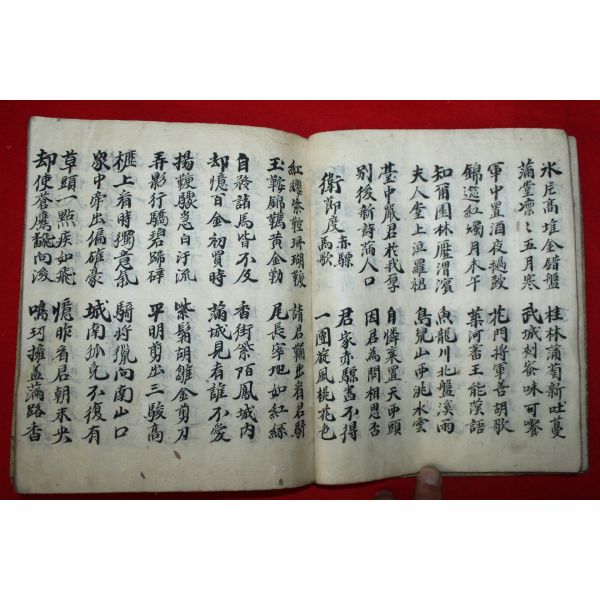 氷片高堆金錯盤
滿堂凛〻五月寒
桂林蒲萄新吐蔓
武城刺蜜味可飡
軍中置酒夜撾鼓
錦筵紅燭月未午
花門將軍善胡歌
葉河番王能漢語
知爾園林壓渭濱
夫人堂上泣羅裙
魚龍川北盤溪雨
鳥鼠山西洮水雲
臺中嚴君於我厚
別後新詩滿人口
自憐棄置天西頭
因君為問相思否
衛節度赤驃馬歌
君家赤驃畫不得
一團旋風桃花色
紅纓紫鞚珊瑚鞭
玉鞍錦韉黃金勒
請君鞲出看君騎
尾長窣地如紅絲
自矜諸馬皆不及
却憶百金初買時
香街紫陌鳳城內
滿城見者誰不愛
揚鞭驟急白汗流
弄影行驕碧蹄碎
紫髯胡雛金剪刀
平明剪出三騣高
櫪上看時獨意氣
衆中牽出偏雄豪
騎將獵向南山口
城南狐兔不復有
草頭一點疾如飛
却使蒼鷹翻向後
憶昨看君朝未央
鳴珂擁盖滿路香